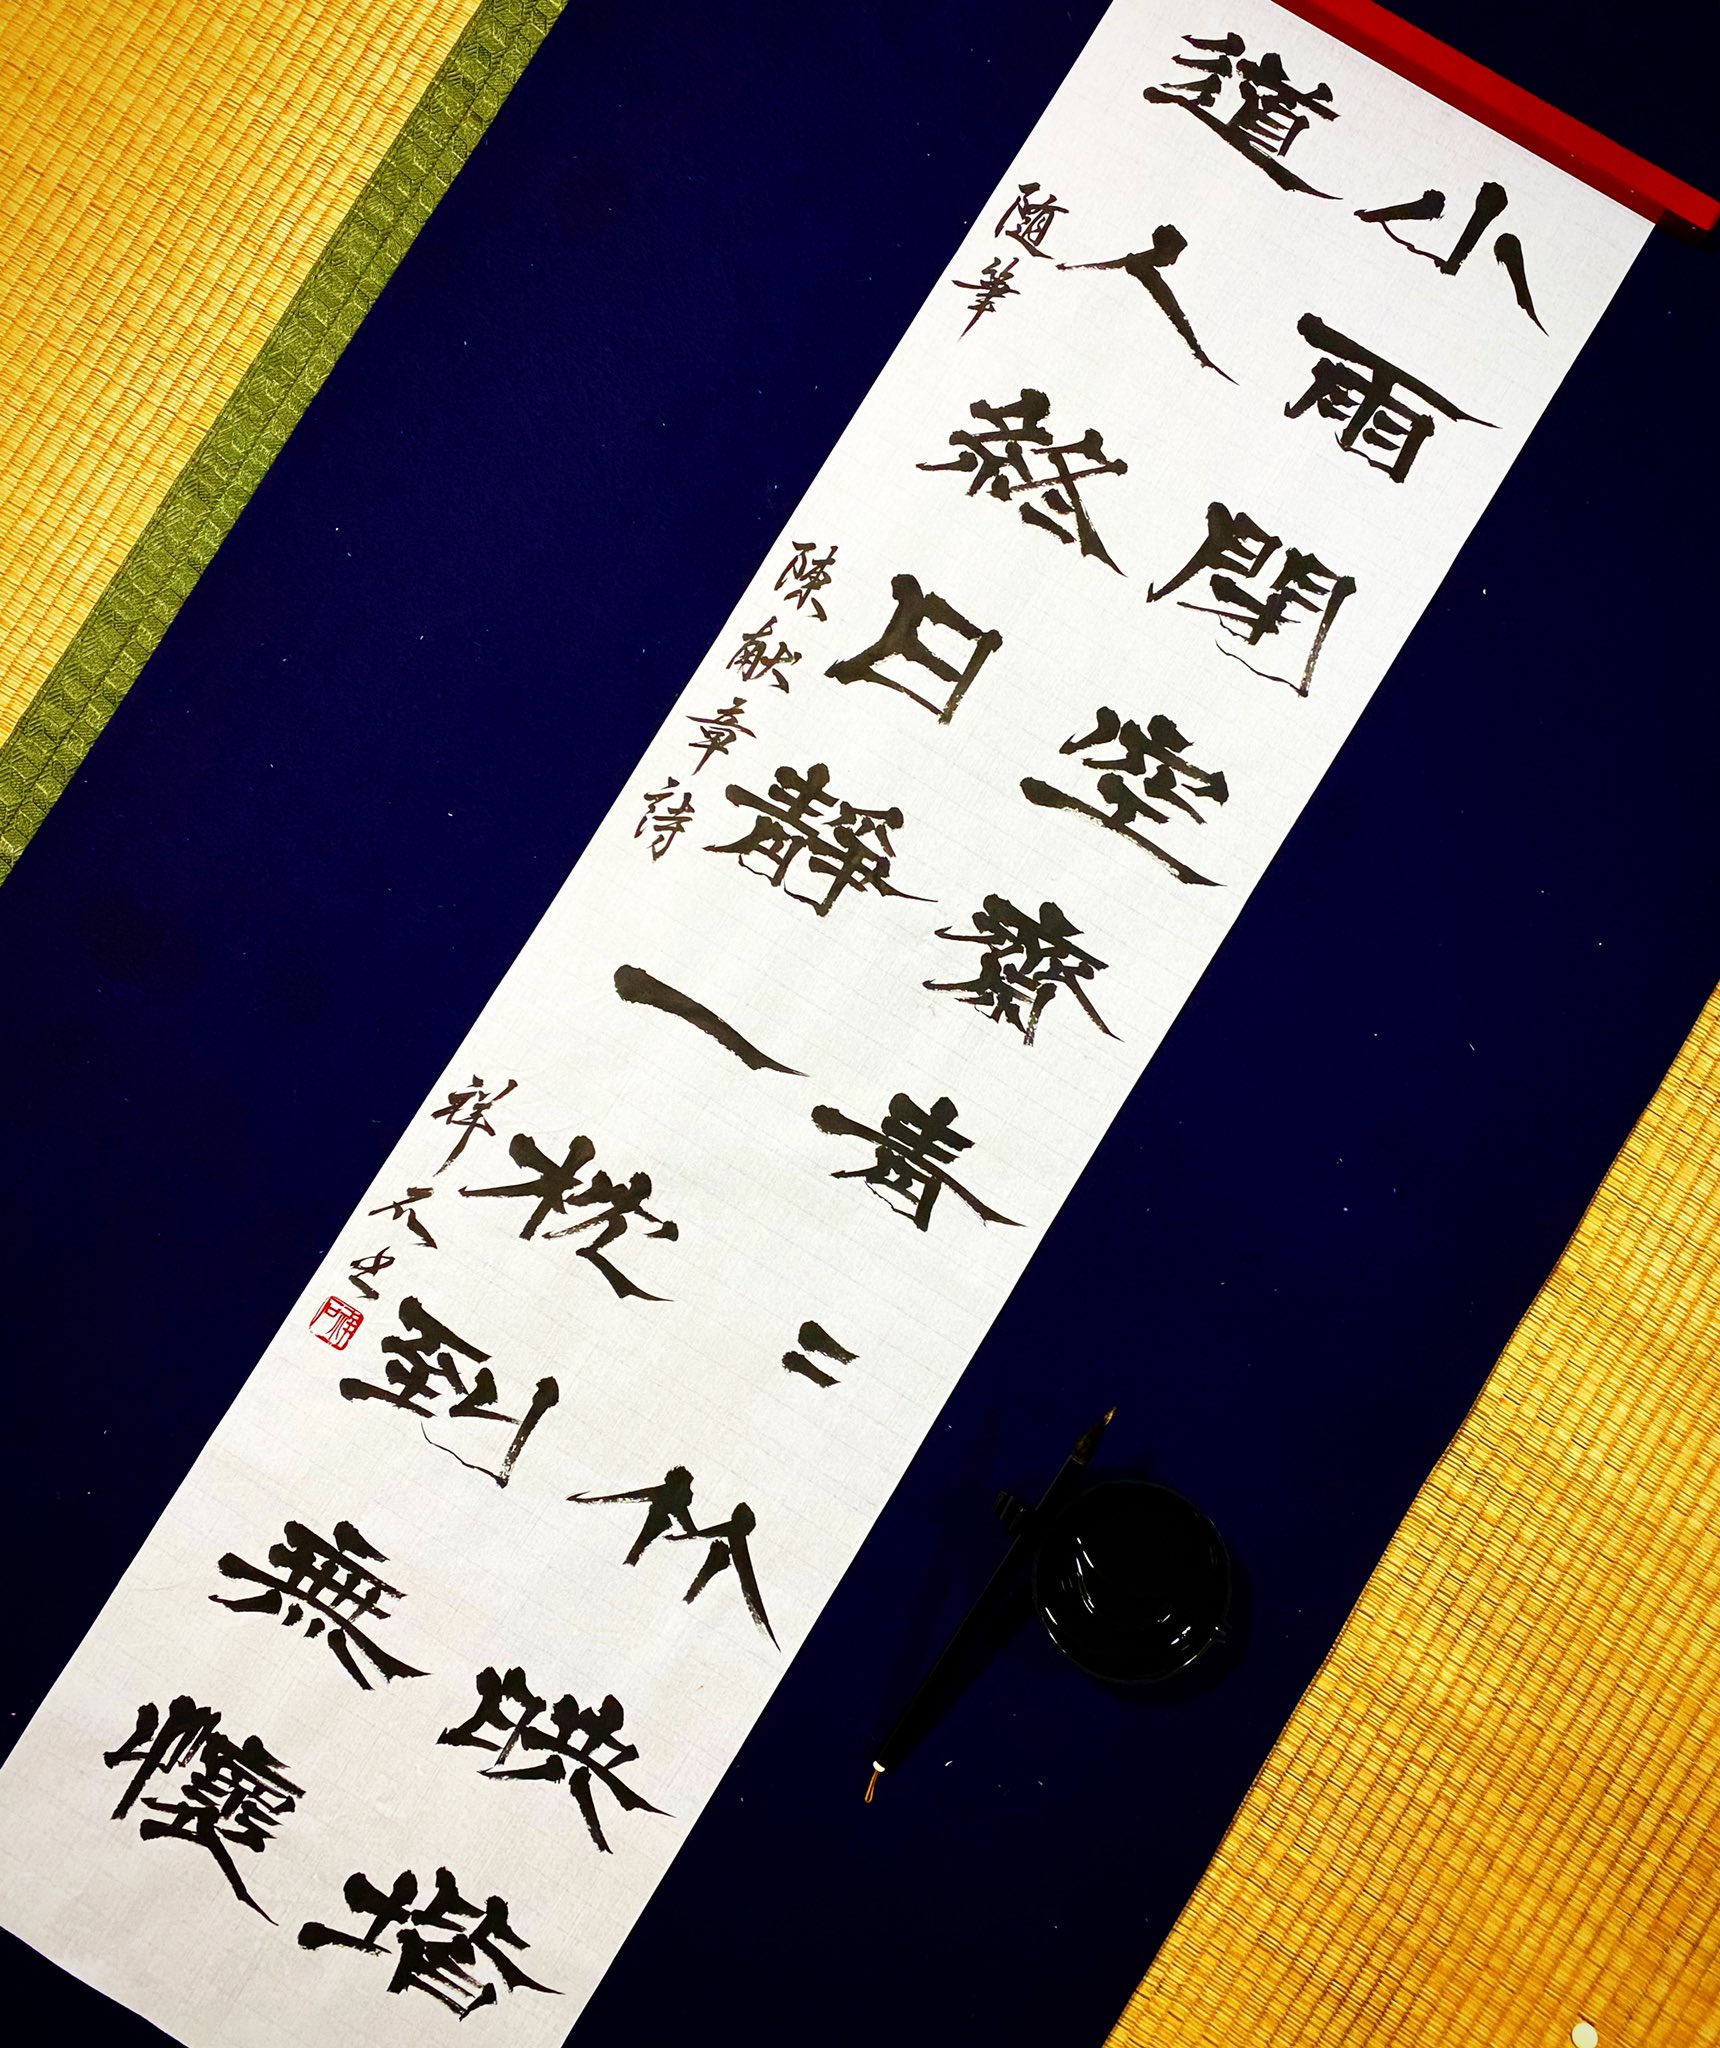 小雨閉空齋青〻竹映揩
道人終日靜一枕到無懷
随筆 陳献章詩 祥元书